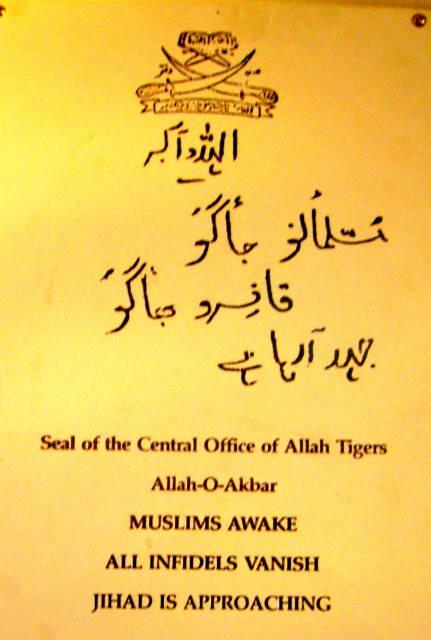 اللہ آکبر
مُسلمانو جاگو
قافِرو بھاگو
جہد آرہا ہے
Seal of the Central Office of Allah Tigers
Allah-O-Akbar
MUSLIMS AWAKE
ALL INFIDELS VANISH
JIHAD IS APPROACHING